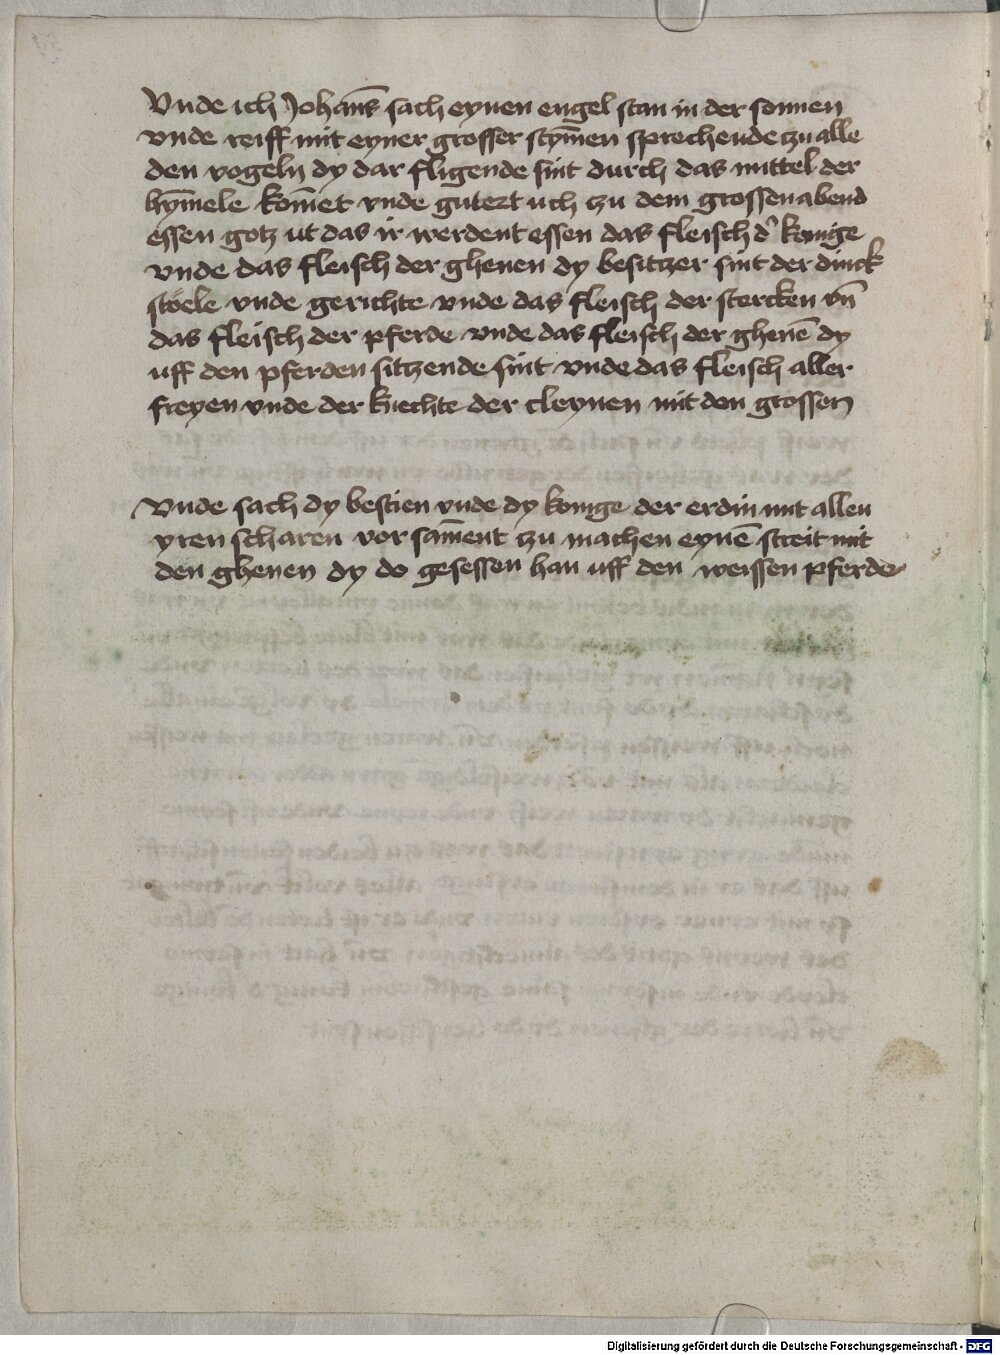 Vnde ich Johan̄s sach eynen engel stan in der sonnen
vnde reiff mit eyner grosser stym̄en sprechende zu alle
den vogeln dy dar fligende sint durch das mittel der
hym̄ele kom̄et vnde gutert uch zu dem grossen abend
essen gotz ut das ir werdent essen das fleisch d' konige
vnde das fleisch der ghenen dy besitzer sint der dinck
stoele vnde gerichte vnde das fleisch der stercken vn̄
das fleisch der pferde vnde das fleisch der ghenē dy
uff den pferden sitzende sint vnde das fleisch aller
freyen vnde der knechte der cleynen mit den grossen
Vnde sach dy bestien vnde dy konige der erdin mit allen
yren scharen vor sam̄ent zu machen eynē streit mit
den ghenen dy do gesessen han uff den weissen pferde
Digitalisierung gefördert durch die Deutsche Forschungsgemeinschaft - DFG